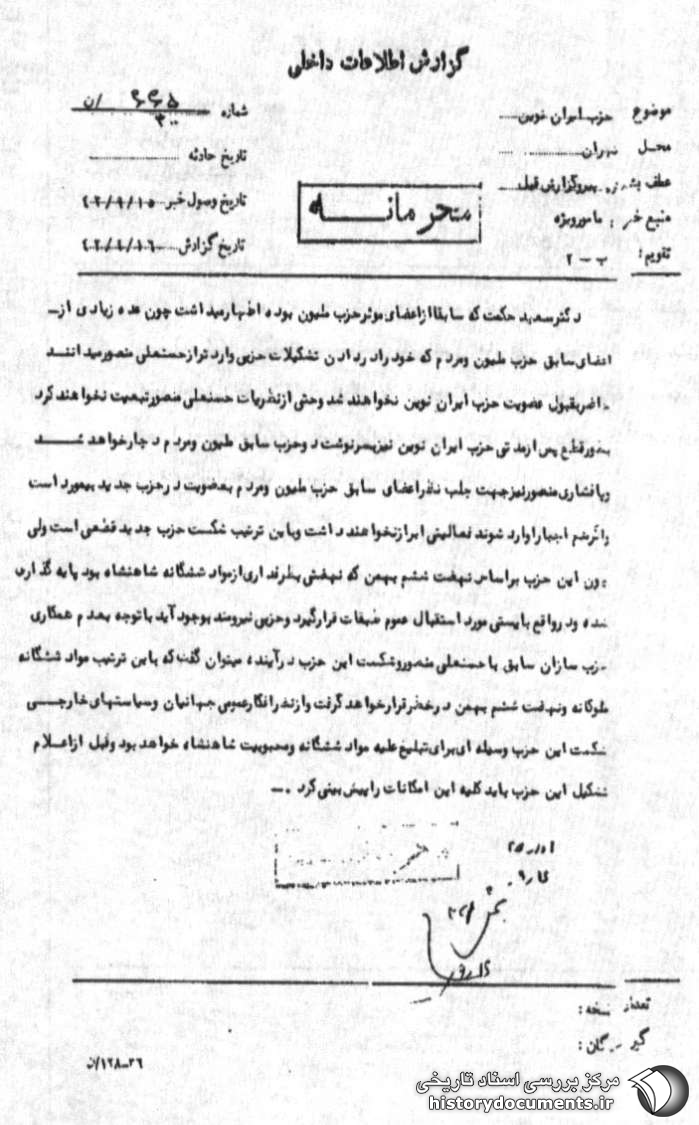 گزارش اطلاعات داخلی
موضوع حزب ایران نوین
شماره ۳۰۰/ن
محل تهران
تاریخ حادثه
عطف به پیروگزارش قبل
تاریخ وصول خبر ۴۲/۹/۱۵
منبع خبر مامورویژه
تاریخ گزارش ۴۲/۹/۱۶
تقویم: ب - ۲
محرمانه
دکترسعید حکمت که سابقاازاعضای موثرحزب ملیون بوده اظهارمیداشت چون عده زیادی از
اعضای سابق حزب ملیون ومردم که خودرادرادن تشکیلات حزبی واردترازحسنعلی منصورمیدانند
حاضربقبول عضویت حزب ایران نوین نخواهند شد وحتی ازنظریات حسنعلی منصورتبعیت نخواهند کرد
بطورقطع پس ازمدتی حزب ایران نوین نیزبسرنوشت دوحزب سابق ملیون ومردم دچارخواهد شد
وپافشاری منصورنیزجهت جلب نظراعضای سابق حزب ملیون ومردم بعضویت درحزب جدید بیمورد است
واگرهم اجباراوارد شوند فعالیتی ابرازنخواهند داشت وباین ترتیب شکست حزب جدید قطعی است ولی
چون این حزب براساس نهضت ششم بهمن که نهضتی بطرفداری ازمواد ششگانه شاهنشاه بود پایه گذاری
شده ودرواقع بایستی مورد استقبال عموم طبقات قرارگیرد وحزبی نیرومند بوجودآید باتوجه بعدم همکاری
حزب سازان سابق باحسنعلی منصوروشکست این حزب درآینده میتوان گفت که باین ترتیب مواد ششگانه
ملوکانه ونهضت ششم بهمن درخطرقرارخواهد گرفت وازنظرافکارعمومی جهانیان وسیاستهای خارجی
شکست این حزب وسیله ای برای تبلیغ علیه مواد ششگانه ومحبوبیت شاهنشاه خواهد بود وقبل ازاعلام
تشکیل این حزب باید کلیه این امکانات راپیش بینی کرد .
تعداد نسخه:
گیرندگان:
۳۶-۱۲۸/ن
مرکز بررسی اسناد تاریخی
historydocuments.ir